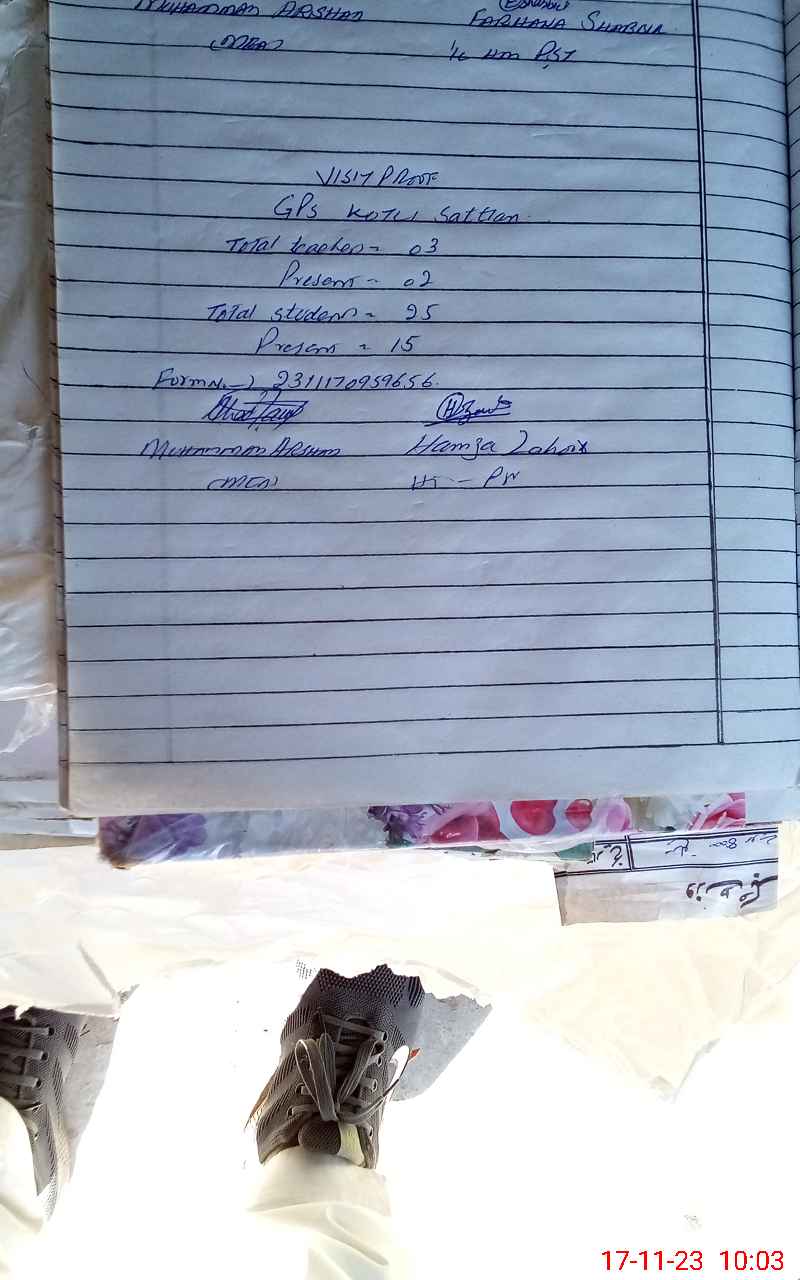 MUHAMMAD ARSHAD FARHANA SHABNA
(MEA) PST
VISIT PROOF
GPS KOTLI Sattian
Total teacher = 03
Present = 02
Total student = 25
Present = 15
Form No. → 2311170959656
MUHAMMAD ARSHAD Hamza Zahoor
(MEA) Ht -
17-11-23 10:03